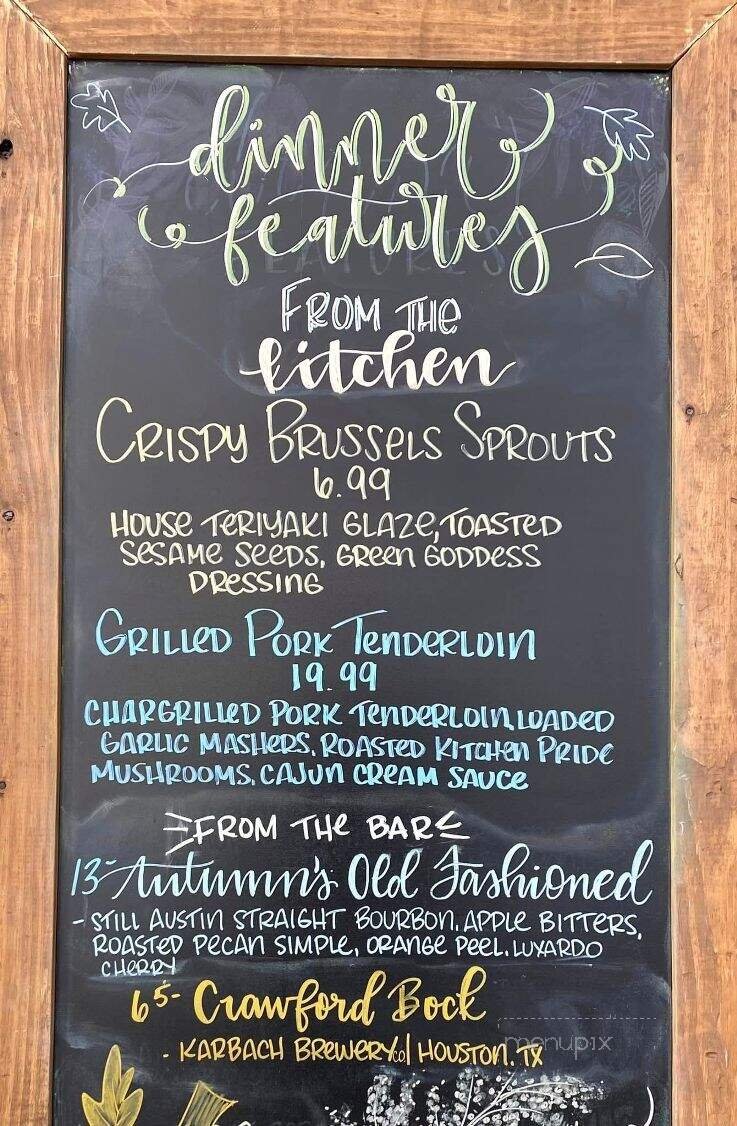 dinner
features
FROM THE
kitchen
CRISPY BRUSSELS SPROUTS
6.99
HOUSE TERIYAKI GLAZE, TOASTED
SESAME SEEDS, GREEN GODDESS
DRESSING
GRILLED PORK TENDERLOIN
19.99
CHARGRILLED PORK TENDERLOIN, LOADED
GARLIC MASHERS, ROASTED KITCHEN PRIDE
MUSHROOMS, CAJUN CREAM SAUCE
FROM THE BAR
13- Autumn's Old Fashioned
- STILL AUSTIN STRAIGHT BOURBON, APPLE BITTERS,
ROASTED PECAN SIMPLE, ORANGE PEEL, LUXARDO
CHERRY
6 5- Crawford Bock
- KARBACH BREWERY CO | HOUSTON, TX
menupix